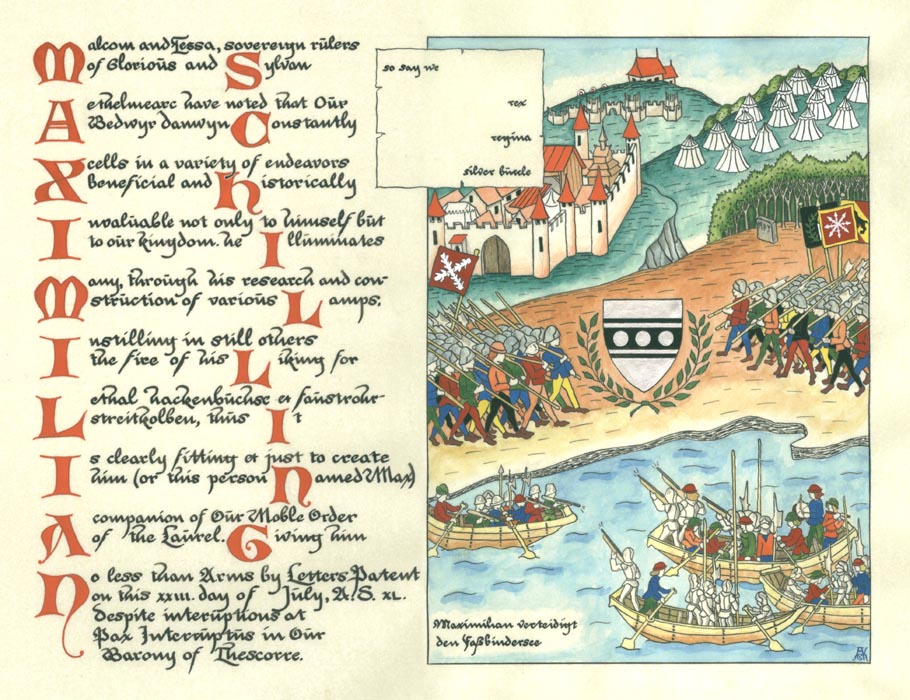 Malcom and Tessa, sovereign rulers
of Glorious and Sylvan
Aethelmearc have noted that Our
Bedwyr Danwyn Constantly
Xcells in a variety of endeavors
beneficial and historically
Invaluable not only to himself but
to our kingdom. he Illuminates
Many, through his research and con-
struction of various Lamps;
Instilling in still others
the fire of his Liking for
Lethal hackenbuchse et faustrohr-
streitkolben, thus It
Is clearly fitting et just to create
him (or this person Named Max)
A companion of Our Noble Order
of the Laurel. Giving him
No less than Arms by Letters Patent
on this xxiii. day of July, A.S. xl.
despite interuptions at
Pax Interruptus in Our
Barony of Thescorre.
so say we
rex
regina
silver buccle
Maximilian verteidigt
den Faßbindersee